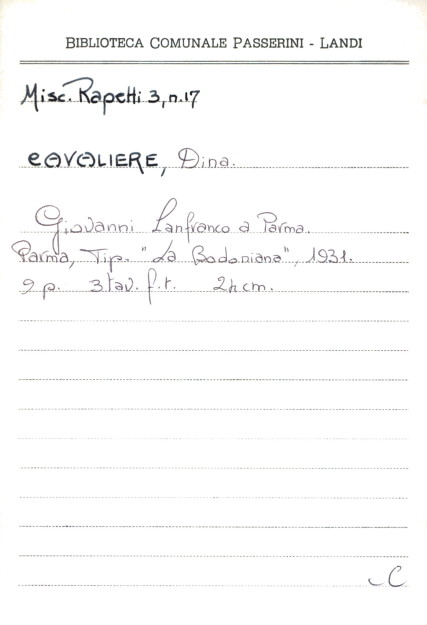 BIBLIOTECA COMUNALE PASSERINI - LANDI
Misc. Rapetti 3, n.17
CAVALIERE, Dina.
Giovanni Lanfranco a Parma.
Parma, Tip. "La Bodoniana", 1931.
9 p. 3 tav. f.t. 24 cm.
C